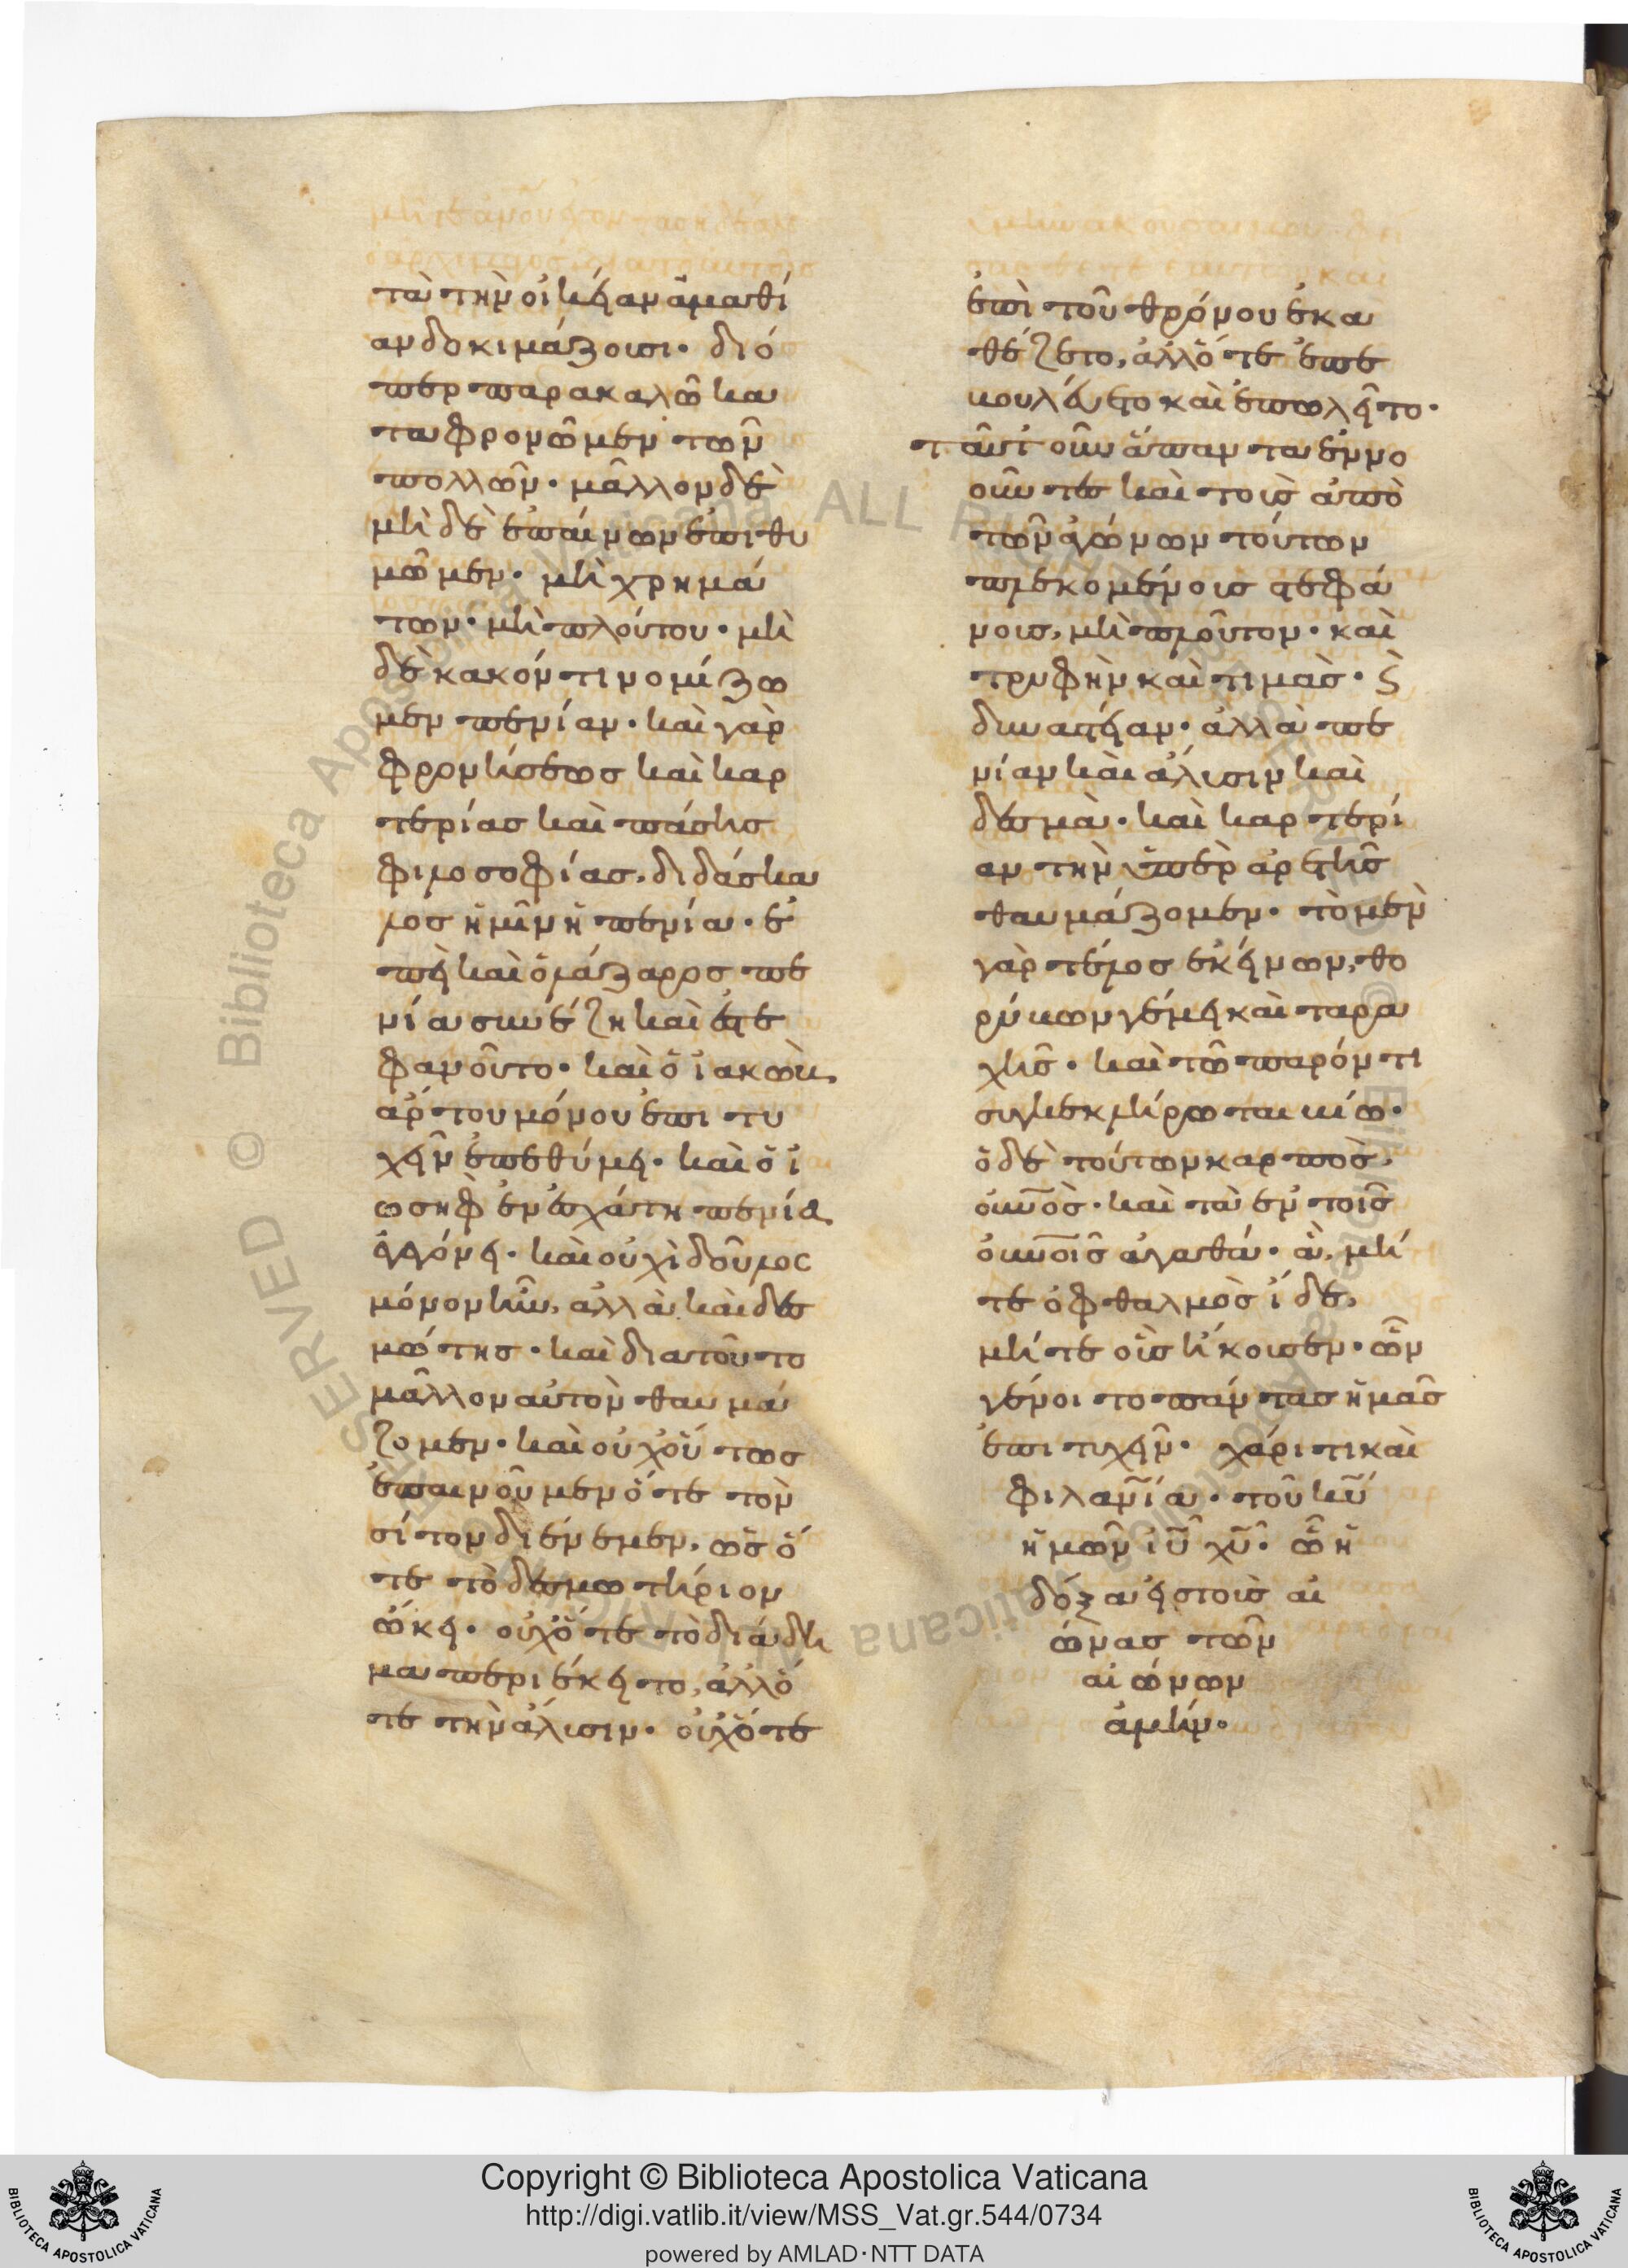 τὰ τὴν οἰκείαν ἀμαθί
αν δοκιμάζουσι· διό
περ παρακαλῶ κα
ταφρονῶμεν τῶν
πολλῶν· μᾶλλον δὲ
μὴ δὲ ἐπαίνων ἐπιθυ
μῶμεν· μὴ χρημά
των· μὴ πλούτου· μὴ
δὲ κακόν τι νομίζω
μεν πενίαν· καὶ γὰρ
φρονήσεως καὶ καρ
τερίας καὶ πάσης
φιλοσοφίας, διδάσκα
λος ἡμῖν ἡ πενία· ἐ
πεὶ καὶ ὁ λάζαρος πε
νία συνέζη καὶ ἐστε
φανοῦτο· καὶ ὁ ἰακὼβ
ἄρτου μόνου ἐπιτυ
χεῖν ἐπεθύμει· καὶ ὁ ἰ
ωσὴφ ἐν ἐσχάτη πενία
ἐγεγόνει· καὶ οὐχὶ δοῦλος
μόνον ἦν, ἀλλὰ καὶ δεσ
μώτης· καὶ διατοῦτο
μᾶλλον αὐτὸν θαυμά
ζομεν· καὶ οὐχοὕτως
ἐπαινοῦμεν ὅτε τὸν
σίτον διένεμεν, ὡς ὅ
τε τὸ δεσμωτήριον
ὤκει· οὐχ ὅτε τὸ διάδη
μα περιέκειτο, ἀλλ ὅ
τε τὴν ἅλυσιν· οὐχ ὅτε
ἐπὶ τοῦ θρόνου ἐκα
θέζετο, ἀλλ ὅτε ἐπε
βουλεύετο καὶ ἐπωλεῖτο·
ταῦτ οὖν ἅπαντα ἐννο
οῦντες καὶ τοὺς ἀπὸ
τῶν ἀγώνων τούτων
πλεκομένους στεφά
νους, μὴ πλοῦτον· καὶ
τρυφὴν καὶ τιμὰς· ϗ
δυναστείαν· ἀλλὰ πε
νίαν καὶ ἅλυσιν καὶ
δεσμὰ· καὶ καρτερί
αν τὴν ὑπὲρ ἀρετῆς
θαυμάζομεν· τὸ μὲν
γὰρ τέλος ἐκείνων, θο
ρύβων γέμει καὶ ταρα
χῆς· καὶ τῶ παρόντι
συγκεκλήρωται βίω·
ὁ δὲ τούτων καρπὸς,
οὐνὸς· καὶ τὰ ἐν τοῖς
οὐνοῖς ἀγαθά· ἃ, μή
τε ὀφθαλμὸς ἴδε,
μήτε οὖς ἤκουσεν· ὧν
γένοιτο πάντας ἡμᾶς
ἐπιτυχεῖν· χάριτι καὶ
φιλανία· τοῦ κυ
ἡμῶν ἰυ χυ· ὧ ἡ
δόξα εἰς τοὺς αἰ
ώνας τῶν
αἰώνων
ἀμήν·
Copyright © Biblioteca Apostolica Vaticana
http://digi.vatlib.it/view/MSS_Vat.gr.544/0734
powered by AMLAD·NTT DATA